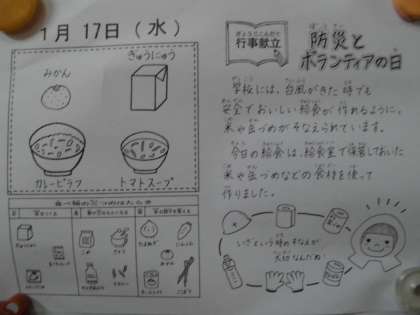 1月 17日（水）
みかん
ぎゅうにゅう
カレーピラフ
トマトスープ
行事献立
ぎょうじこんだて
防災と
ボランティアの日
学校には、台風がきた時でも
安全でおいしい給食が作れるように、
米や缶づめがそなえられています。
今日の給食は、給食室で保管しておいた
米や缶づめなどの食材を使って
作りました。
いざという時のそなえが
大切なんだね
こめ
たまねぎ
にんじん
みかん